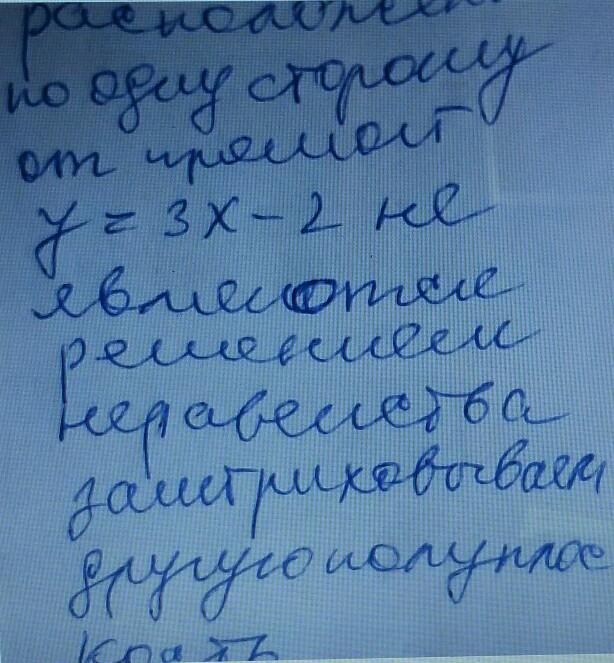 расположен
по одну сторону
от прямой
y = 3x - 2 не
являются
решением
неравенства
заштриховываем
другую полуплос